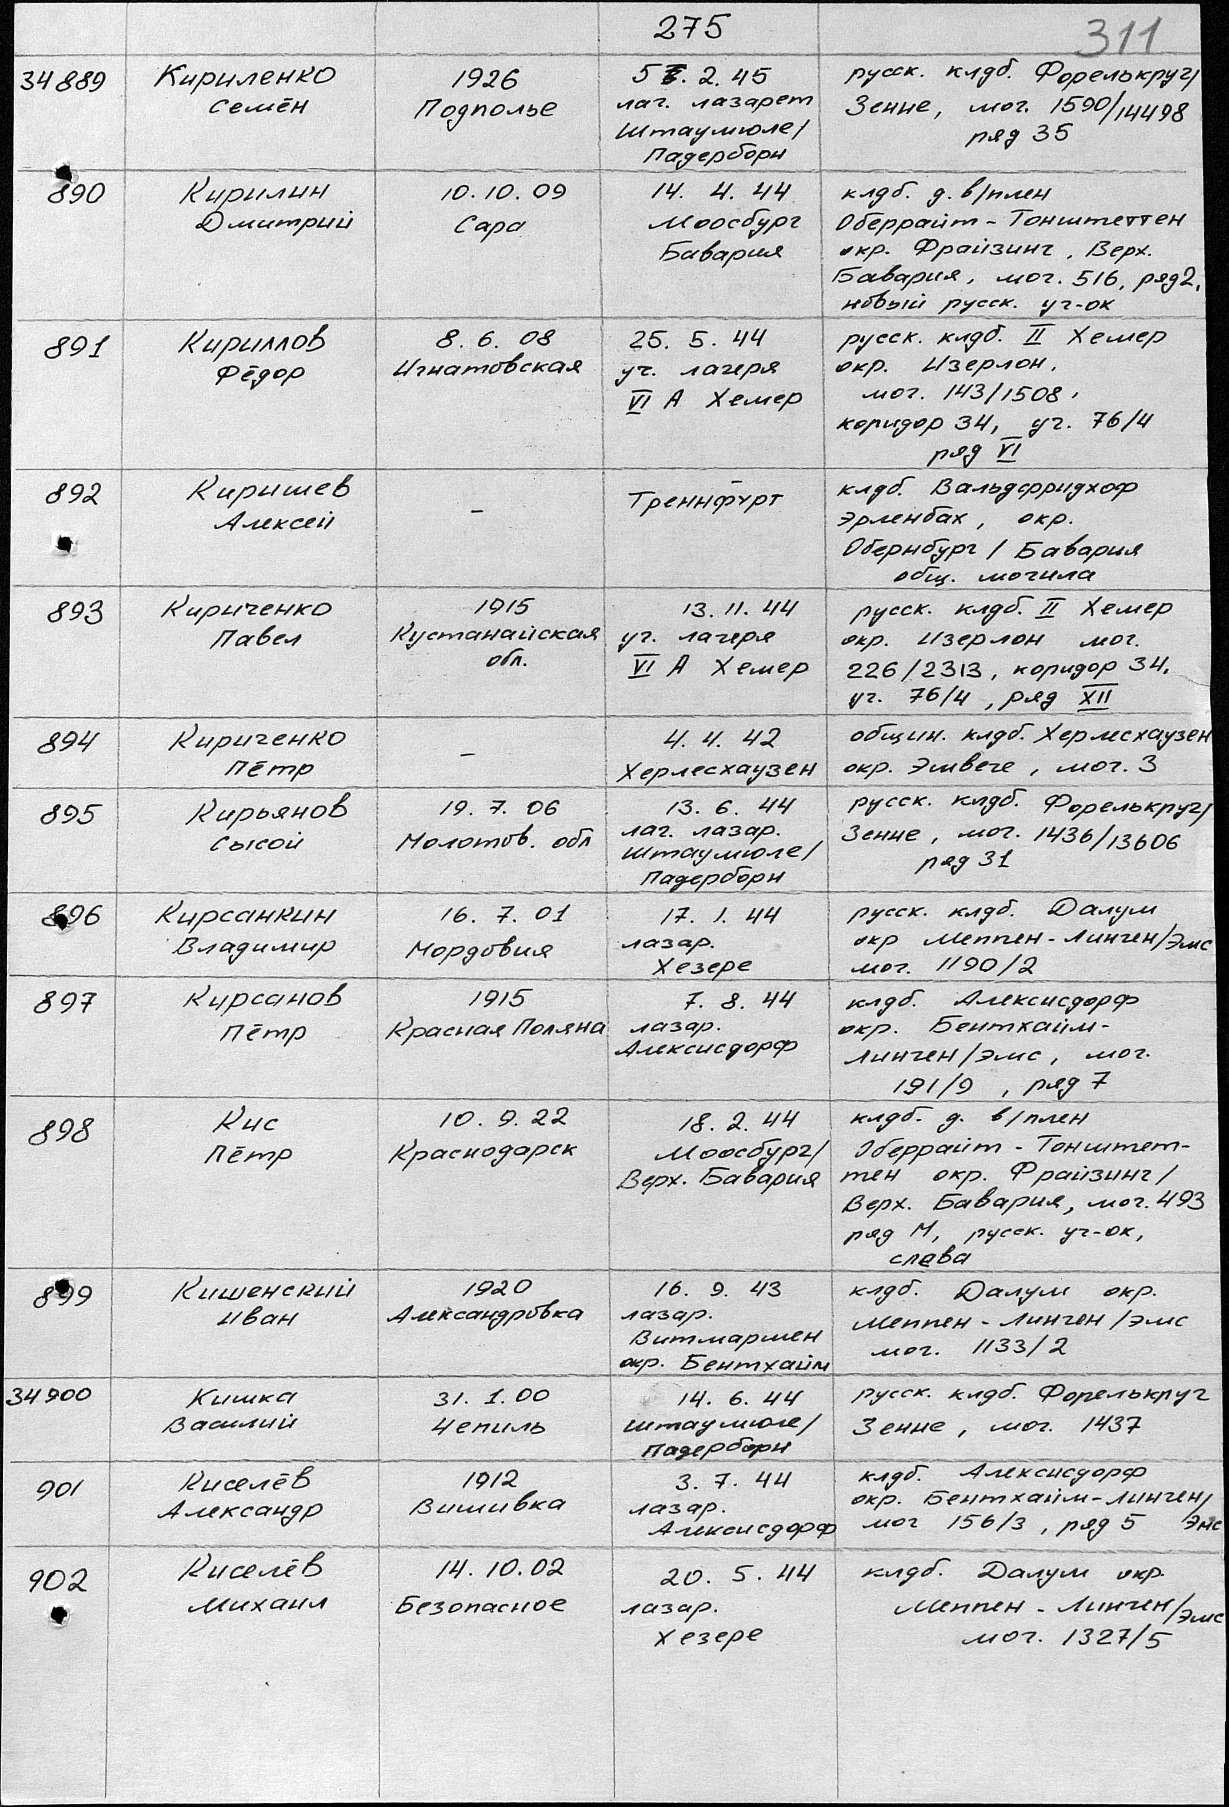 275
311
34889
Кириленко
Семён
1926
Подполье
5. 2. 45
лаг. лазарет
Штаумюле/
Падерборн
русск. клдб. Форелькруг/
Зенне, мог. 1590/14498
ряд 35
890
Кирилин
Дмитрий
10. 10. 09
Сара
14. 4. 44
Моосбург
Бавария
клдб. д. в/плен
Оберрайт - Тонштеттен
окр. Фрайзинг, Верх.
Бавария, мог. 516, ряд 2,
новый русск. уч-ок
891
Кириллов
Фёдор
8. 6. 08
Игнатовская
25. 5. 44
уч. лагеря
VI А Хемер
русск. клдб. II Хемер
окр. Изерлон,
мог. 143/1508,
коридор 34, уч. 76/4
ряд VI
892
Киришев
Алексей
–
–
Треннфурт
клдб. Вальдфридхоф
Эрленбах, окр.
Обернбург / Бавария
общ. могила
893
Кириченко
Павел
1915
Кустанайская
обл.
13. 11. 44
уч. лагеря
VI А Хемер
русск. клдб. II Хемер
окр. Изерлон мог.
226/2313, коридор 34,
уч. 76/4, ряд XII
894
Кириченко
Пётр
–
4. 4. 42
Херлесхаузен
общин. клдб. Херлесхаузен
окр. Эшвеге, мог. 3
895
Кирьянов
Сысой
19. 7. 06
Молотов. обл
13. 6. 44
лаг. лазар.
Штаумюле/
Падерборн
русск. клдб. Форелькруг/
Зенне, мог. 1436/13606
ряд 31
896
Кирсанкин
Владимир
16. 7. 01
Мордовия
17. 1. 44
лазар.
Хезепе
русск. клдб. Далум
окр Меппен-Линген/Эмс
мог. 1190/2
897
Кирсанов
Пётр
1915
Красная Поляна
7. 8. 44
лазар.
Алексисдорф
клдб. Алексисдорф
окр. Бентхайм-
Линген/Эмс, мог.
191/9, ряд 7
898
Кис
Пётр
10. 9. 22
Краснодарск
18. 2. 44
Моосбург/
Верх. Бавария
клдб. д. в/плен
Оберрайт - Тонштет-
тен окр. Фрайзинг/
Верх. Бавария, мог. 493
ряд М, русск. уч-ок,
слева
899
Кишенский
Иван
1920
Александровка
16. 9. 43
лазар.
Витмаршен
окр. Бентхайм
клдб. Далум окр.
Меппен - Линген/Эмс
мог. 1133/2
34900
Кишка
Василий
31. 1. 00
Чепиль
14. 6. 44
Штаумюле/
Падерборн
русск. клдб. Форелькруг
Зенне, мог. 1437
901
Киселёв
Александр
1912
Вишивка
3. 7. 44
лазар.
Алексисдорф
клдб. Алексисдорф
окр. Бентхайм-Линген/
мог 156/3, ряд 5 Эмс
902
Киселёв
Михаил
14. 10. 02
Безопасное
20. 5. 44
лазар.
Хезепе
клдб. Далум окр.
Меппен - Линген/Эмс
мог. 1327/5